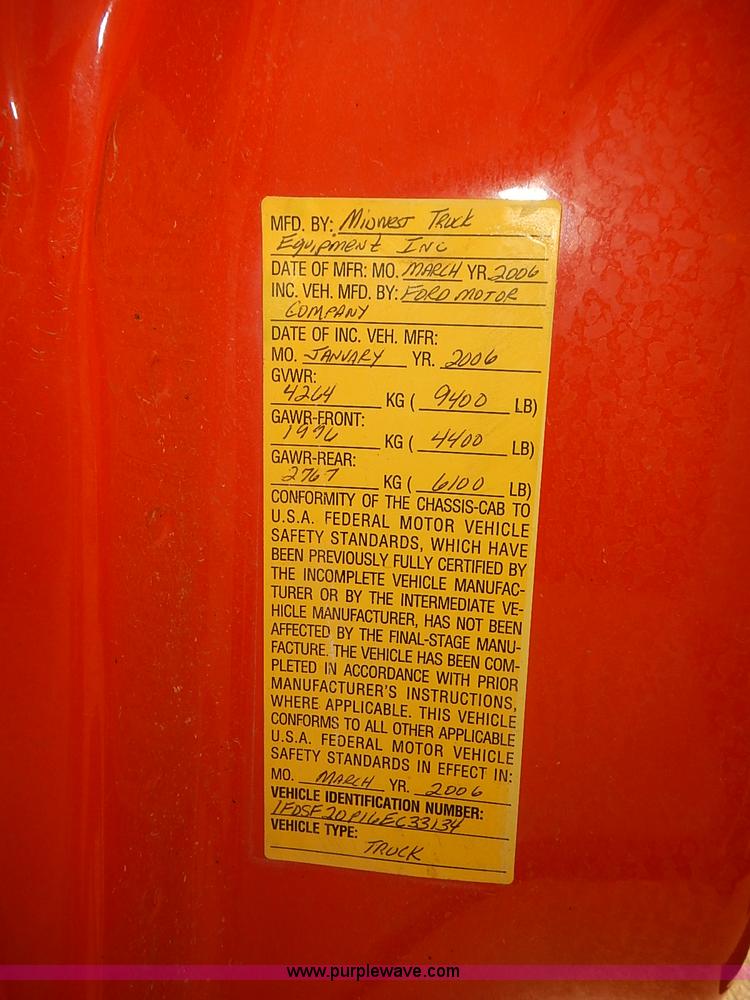 MFD. BY: Midwest Truck
Equipment Inc
DATE OF MFR: MO. MARCH YR. 2006
INC. VEH. MFD. BY: FORD MOTOR
COMPANY
DATE OF INC. VEH. MFR:
MO. JANUARY YR. 2006
GVWR:
4264 KG ( 9400 LB)
GAWR-FRONT:
1996 KG ( 4400 LB)
GAWR-REAR:
2767 KG ( 6100 LB)
CONFORMITY OF THE CHASSIS-CAB TO
U.S.A. FEDERAL MOTOR VEHICLE
SAFETY STANDARDS, WHICH HAVE
BEEN PREVIOUSLY FULLY CERTIFIED BY
THE INCOMPLETE VEHICLE MANUFAC-
TURER OR BY THE INTERMEDIATE VE-
HICLE MANUFACTURER, HAS NOT BEEN
AFFECTED BY THE FINAL-STAGE MANU-
FACTURE. THE VEHICLE HAS BEEN COM-
PLETED IN ACCORDANCE WITH PRIOR
MANUFACTURER'S INSTRUCTIONS,
WHERE APPLICABLE. THIS VEHICLE
CONFORMS TO ALL OTHER APPLICABLE
U.S.A. FEDERAL MOTOR VEHICLE
SAFETY STANDARDS IN EFFECT IN:
MO. MARCH YR. 2006
VEHICLE IDENTIFICATION NUMBER:
1FDSF20P16EC33134
VEHICLE TYPE:
TRUCK
www.purplewave.com